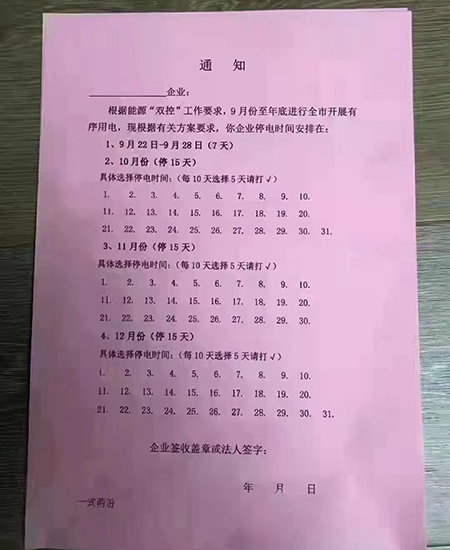 通 知
企业:
根据能源“双控”工作要求,9月份至年底进行全市开展有
序用电,现根据有关方案要求,你企业停电时间安排在:
1、9月22日-9月28日(7天)
2、10月份(停15天)
具体选择停电时间:(每10天选择5天请打√)
1. 2. 3. 4. 5. 6. 7. 8. 9. 10.
11. 12. 13. 14. 15. 16. 17. 18. 19. 20.
21. 22. 23. 24. 25. 26. 27. 28. 29. 30. 31.
3、11月份(停15天)
具体选择停电时间:(每10天选择5天请打√)
1. 2. 3. 4. 5. 6. 7. 8. 9. 10.
11. 12. 13. 14. 15. 16. 17. 18. 19. 20.
21. 22. 23. 24. 25. 26. 27. 28. 29. 30.
4、12月份(停15天)
具体选择停电时间:(每10天选择5天请打√)
1. 2. 3. 4. 5. 6. 7. 8. 9. 10.
11. 12. 13. 14. 15. 16. 17. 18. 19. 20.
21. 22. 23. 24. 25. 26. 27. 28. 29. 30. 31.
企业签收盖章或法人签字:
年 月 日
一式两份